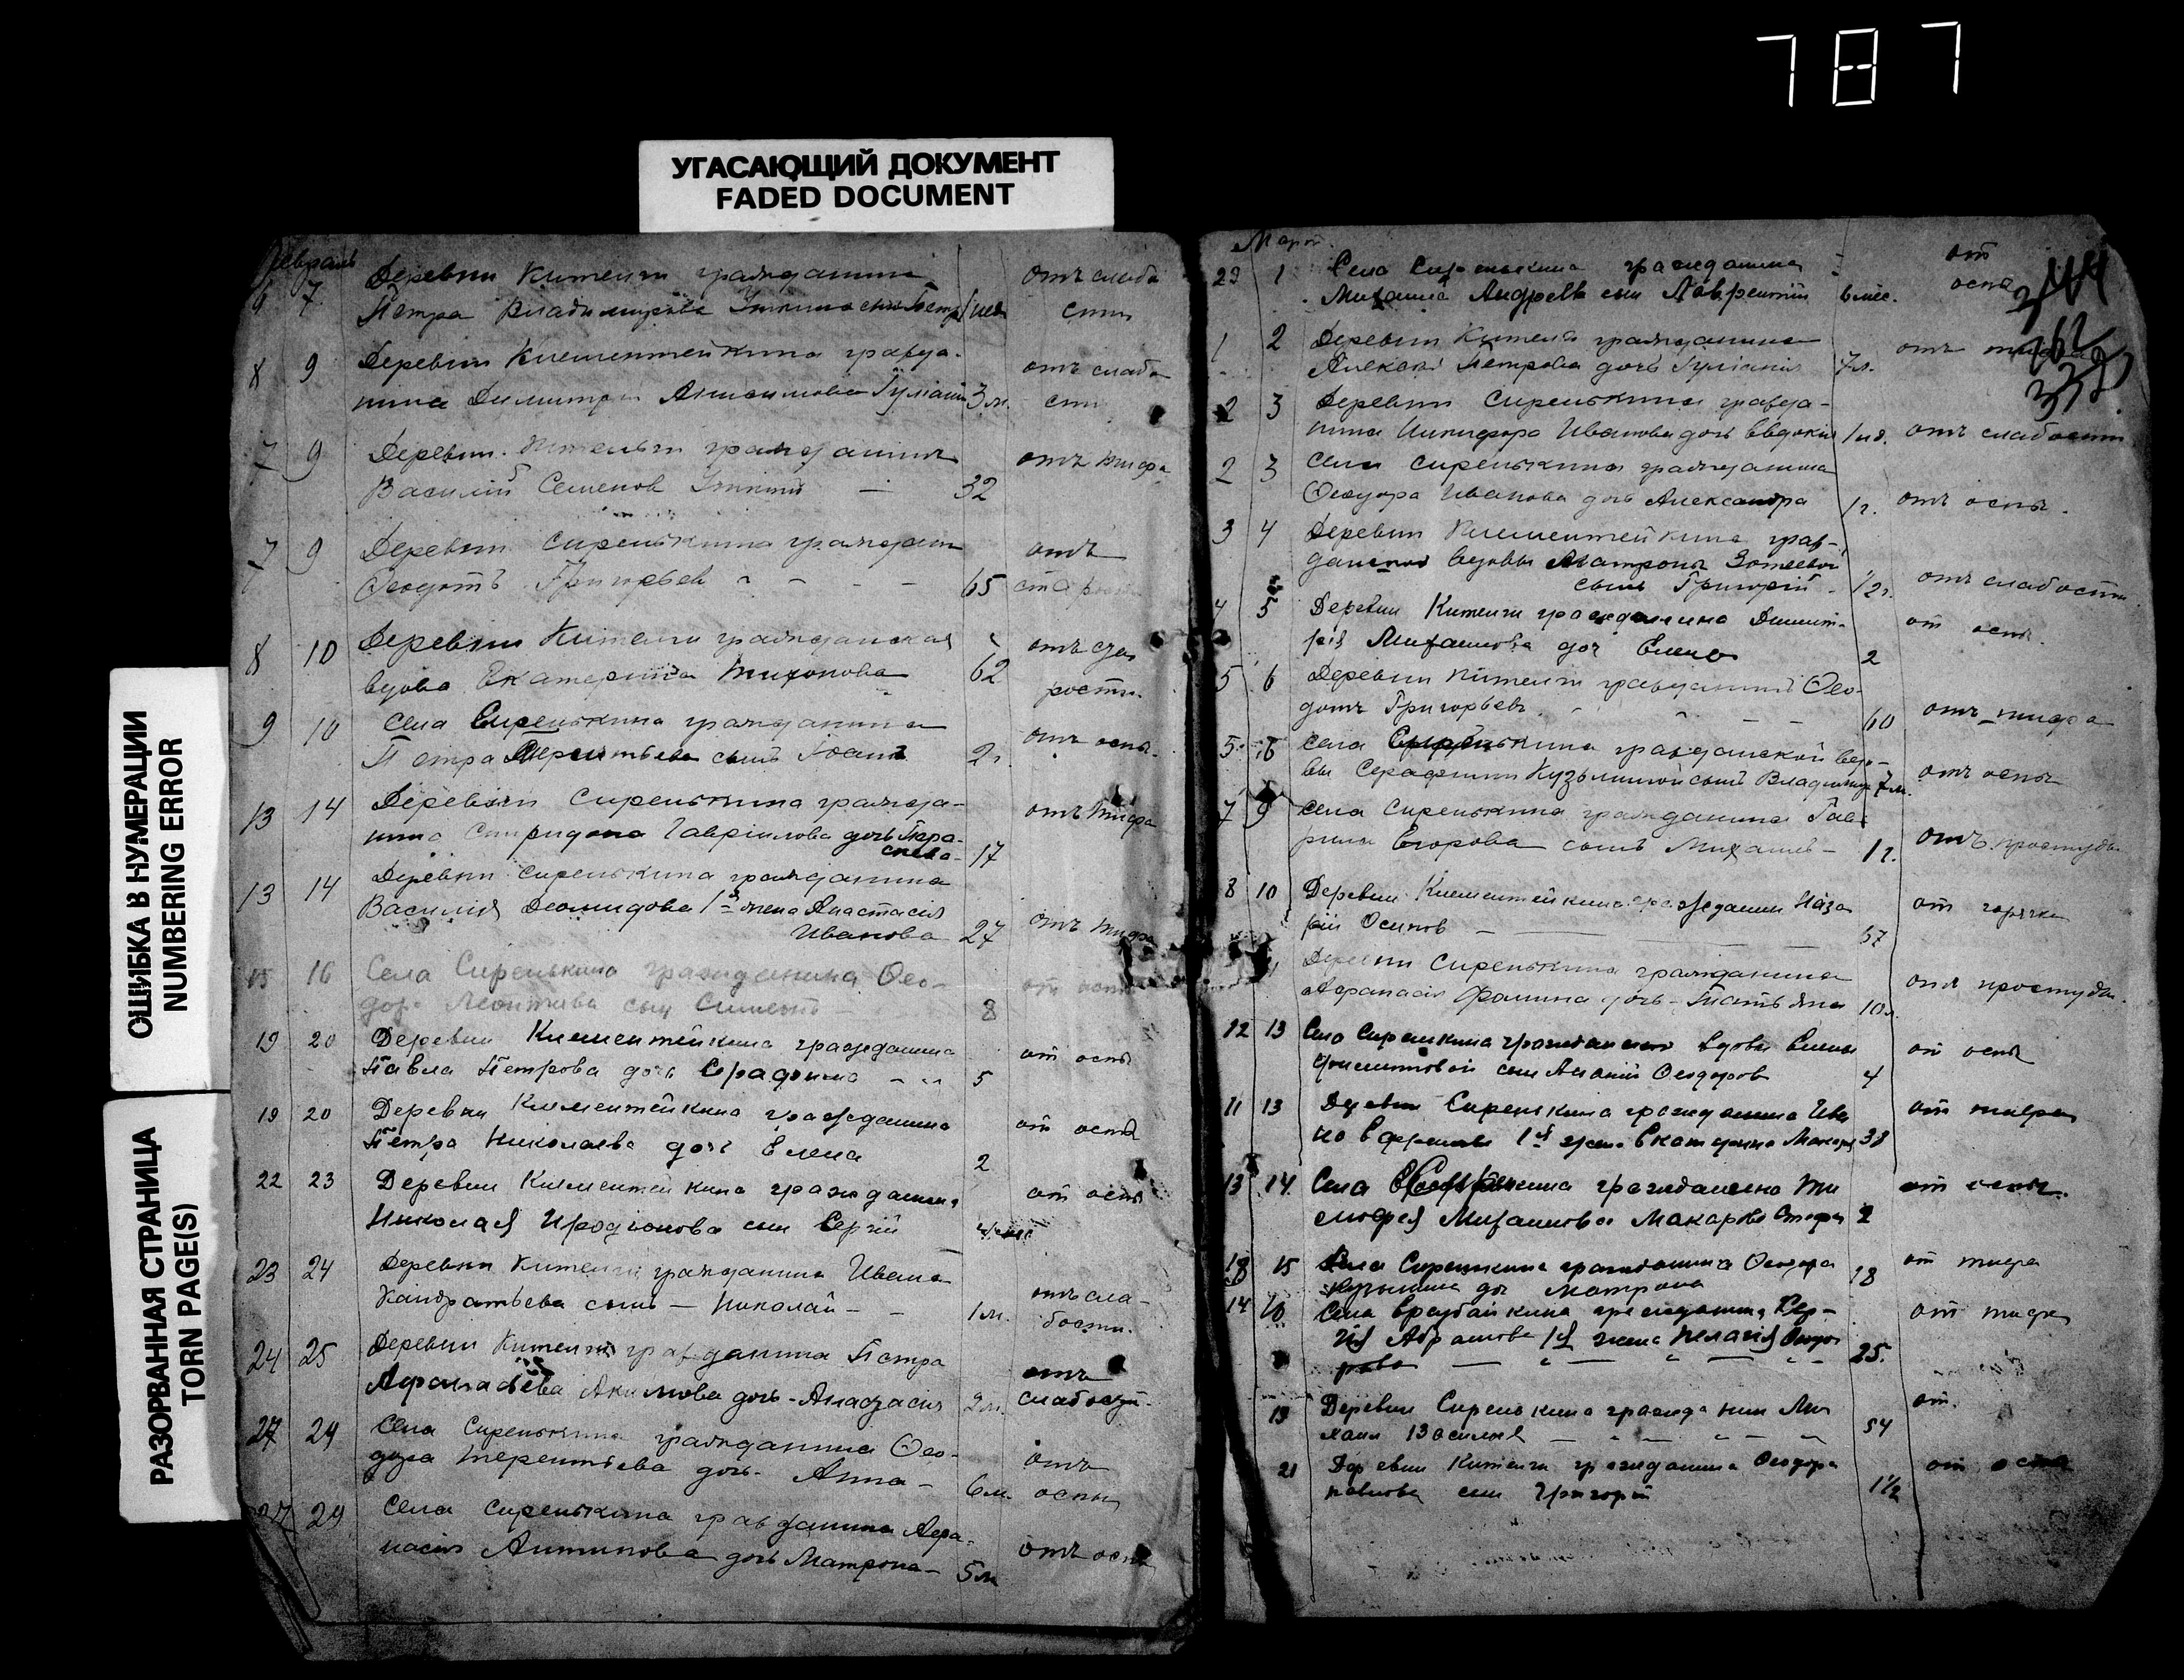 787
УГАСАЮЩИЙ ДОКУМЕНТ
FADED DOCUMENT
ОШИБКА В НУМЕРАЦИИ
NUMBERING ERROR
РАЗОРВАННАЯ СТРАНИЦА
TORN PAGE(S)
Февраль
6 7 Деревни Китенги гражданина отъ слабо
Петра Владимирова сынъ Петр сти
8 9 Деревни Клементейкина гражда- отъ слабо
нина Димитрия Анисимова Гулiания 3 м. сти
7 9 Деревни Кительги гражданинъ отъ тифа
Василiй Семенов — 32
7 9 Деревни Сиренькина граждан отъ
Ѳеодотъ Григорьев 65 старости
8 10 Деревни Кителги гражданская отъ ста
вдова Екатерина Тихонова 62 рости.
9 10 Села Сиренькина гражданина отъ оспы.
Петра Терентьева сынъ Iоанъ 2 г.
13 14 Деревни Сиренькина гражда- отъ тифа
нина Спиридона Гаврiилова дочь Пара-
скева- 17
13 14 Деревни Сиренькина гражданина
Василiя Деомидова 1я жена Анастасiя отъ тифа
Иванова 27
15 16 Села Сиренькина гражданина Ѳео- от оспы
дора Леонтьева сын Симеонъ 8
19 20 Деревни Клементейкина гражданина от оспы
Павла Петрова дочь Серафима 5
19 20 Деревни Клементейкина гражданина от оспы
Петра Николаева дочь Елена 2
22 23 Деревни Клементейкина гражданина от оспы
Николая Иродiонова сын Сергiй
23 24 Деревни Кителги гражданина Ивана отъ сла-
Кандратьева сынъ — Николай - - 1 м. бости.
24 25 Деревни Кителги гражданина Петра отъ
Афанасьева Акимова дочь - Анастасiя 2 м. слабости.
27 29 Села Сиренькина гражданина Ѳео- отъ
дора Терентьева дочь - Анна - 6 м. оспы
27 29 Села Сиренькина гражданина Афа-
насiя Антипова дочь Матрона - 5 м отъ оспы
Март.
29 1 Села Сиренькина гражданина от
Михаила Андреева сын Лаврентiй 6 мес. оспы
344
162
338
1 2 Деревни Кителги гражданина отъ тифа
Алексея Петрова дочь Гулiания 7 л.
2 3 Деревни Сиренькина гражда-
нина Никифора Иванова дочь Евдокия 1 нд. отъ слабости
2 3 Села Сиренькина гражданина
Ѳеодора Иванова дочь Александра 1 г. отъ оспы.
3 4 Деревни Клементейкина граж-
данской вдовы Матроны Зотеевой
сынъ Григорiй - 1/2 г. отъ слабости
4 5 Деревни Кителги гражданина Димит- от оспы
рiя Михаилова доч Елена 2
5 6 Деревни Кителги гражданинъ Ѳео-
дотъ Григорьевъ 60 отъ тифа
5 6 Села Сиренькина гражданской вдо-
вы Серафимы Кузьминой сынъ Владимир 7 м. отъ оспы
7 9 Села Сиренькина гражданина Гав-
рила Егорова сынъ Михаилъ - 1 г. отъ простуды
8 10 Деревни Клементейкина гражданин Наза от горячки
рiй Осипов — 57
Деревни Сиренькина гражданина
Афанасiя Фомина дочь - Татьяна 10 л. отъ простуды.
12 13 Село Сиренькина гражданской вдовы Елены от оспы
сын Ананiй Ѳеодоров 4
11 13 Деревни Сиренькина гражданина Ива от тифа
на Ефремова 1я жена Екатерина Макар 38
13 14 Села гражданина Ти от оспы.
мофея Михаилова Макарова 2
18 15 Села Сиренькина гражданина Ѳеодора 18 от тифа
Кузьмина доч Матрона
14 16 Села Ерсубайкина гражданина Сер- от тифа
гiя Абрамова 1я жена Пелагiя Ѳеодо
рова 25.
19 Деревни Сиренькина гражданин Ми от.
хаил Васильев 54
21 Деревни Кителги гражданина Ѳеодора от оспы
Павлова сын Григорiй 1 1/2